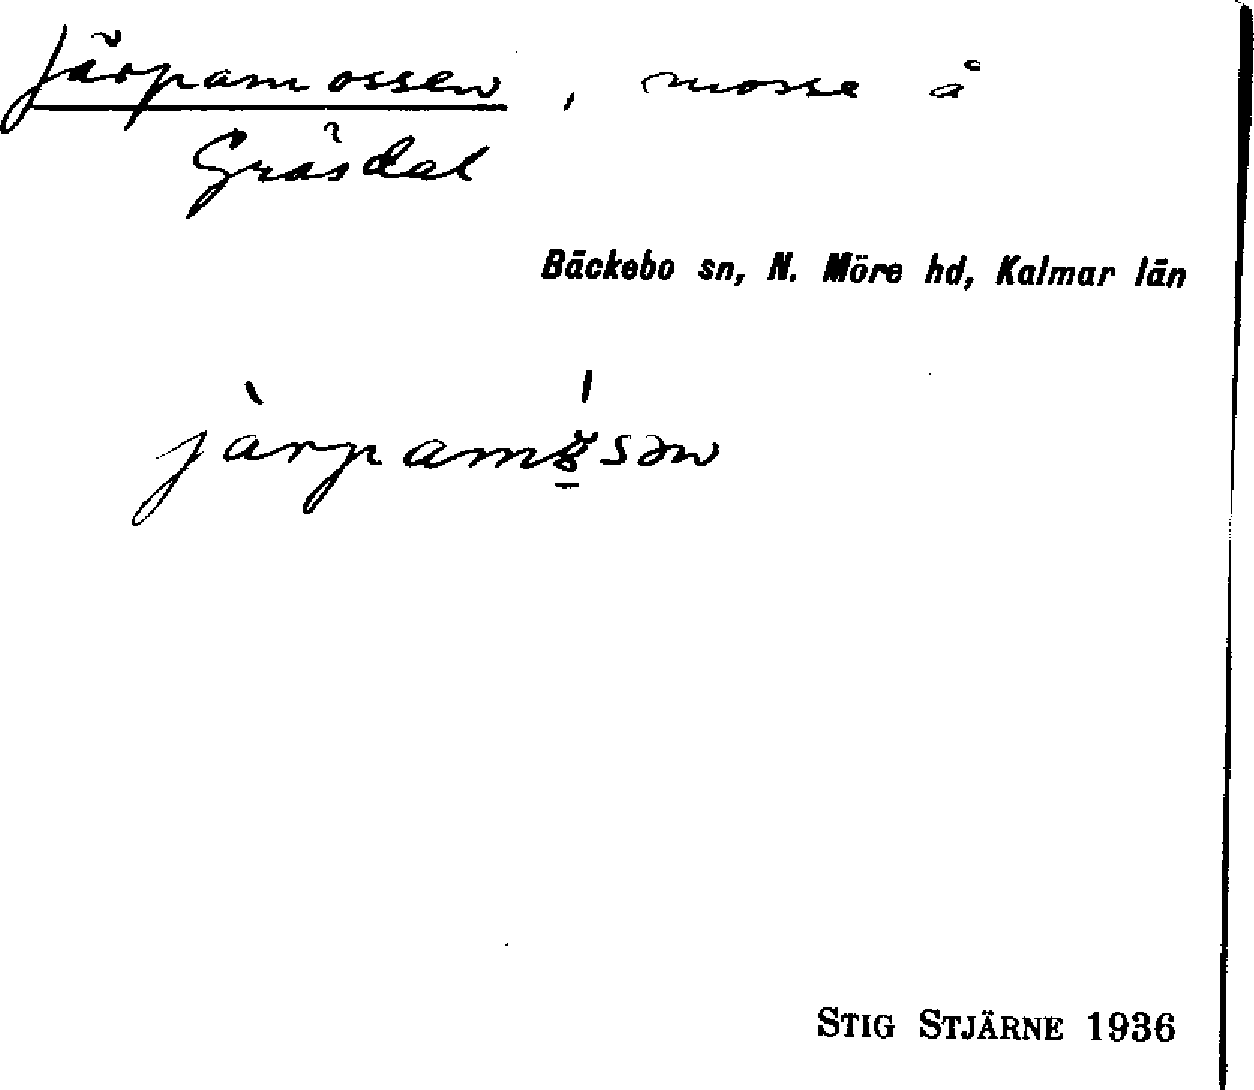 Järpamossen, mosse å
Gräsdal
Bäckebo sn, N. Möre hd, Kalmar län
STIG STJÄRNE 1936